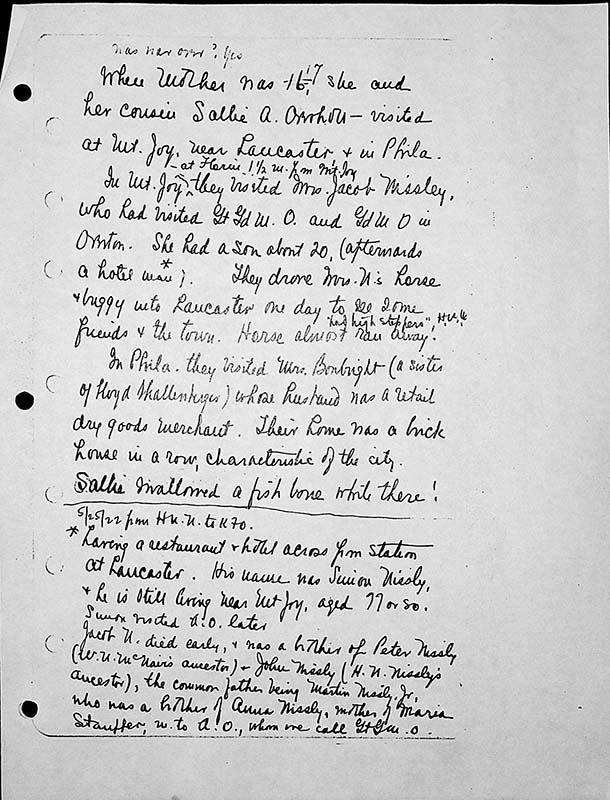 was war over? Yes
When Mother was 16 17 she and
her cousin Sallie A. Overholt – visited
at Mt. Joy, near Lancaster & in Phila.
– at Florin 1 1/2 m. fm Mt. Joy
In Mt. Joy they visited Mrs. Jacob Nissley,
who had visited Gt Gd M. O. and Gd M O in
Overton. She had a son about 20, (afterwards
a hotel man*). They drove Mrs. N's horse
& buggy into Lancaster one day to see some
"had high steppers", H.N.N.
friends & the town. Horse almost ran away.
In Phila. they visited Mrs. Bonbright (a sister
of Floyd Shallenberger) whose husband was a retail
dry goods merchant. Their home was a brick
house in a row, characteristic of the city.
Sallie swallowed a fish bone while there!
5/25/22 from H.N.N. to K70.
* having a restaurant & hotel across fm station
at Lancaster. His name was Simon Nissly,
& he is still living near Mt Joy, aged 79 or 80.
Simon visited A.O. later
Jacob N. died early, & was a brother of Peter Nissly
(W.N. McNair's ancestor) & John Nissly (H.N. Nissly's
ancestor), the common father being Martin Nissly, Jr,
who was a brother of Anna Nissly, mother of Maria
Stauffer, w. to A.O., whom we call Gt Gd M. O.